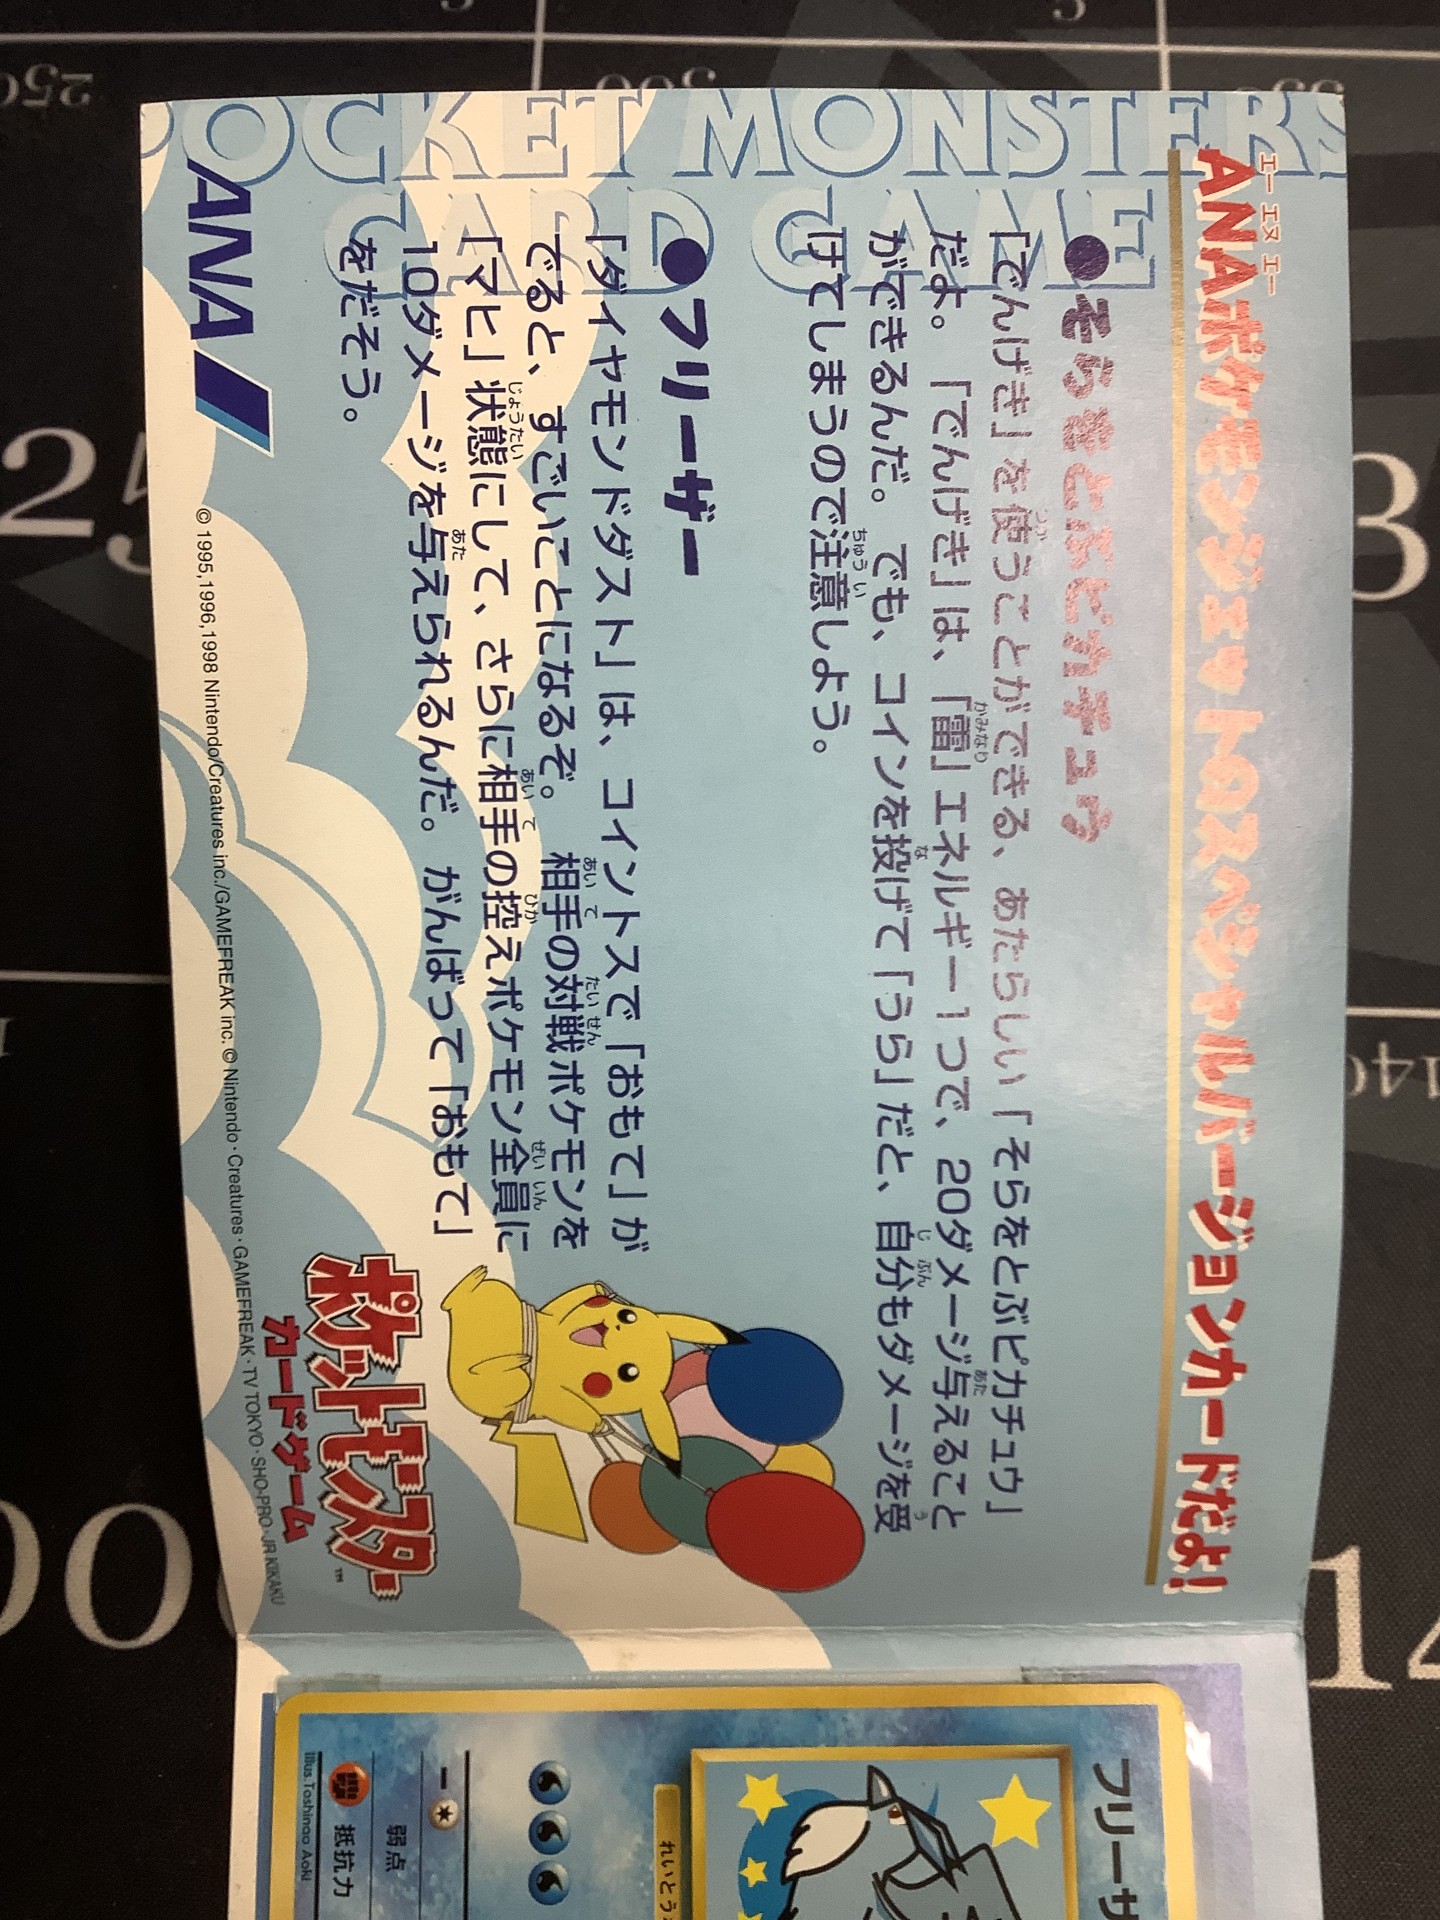 POCKET MONSTERS
CARD GAME
エー エヌ エー
ANAポケモンジェットのスペシャルバージョンカードだよ!
●そらをとぶピカチュウ
「でんげき」を使うことができる、あたらしい「そらをとぶピカチュウ」
だよ。「でんげき」は、「雷」エネルギー1つで、20ダメージ与えること
ができるんだ。でも、コインを投げて「うら」だと、自分もダメージを受
けてしまうので注意しよう。
●フリーザー
「ダイヤモンドダスト」は、コイントスで「おもて」が
でると、すごいことになるぞ。相手の対戦ポケモンを
「マヒ」状態にして、さらに相手の控えポケモン全員に
10ダメージを与えられるんだ。がんばって「おもて」
をだそう。
ポケットモンスター
™
カードゲーム
ANA
© 1995,1996,1998 Nintendo/Creatures inc./GAMEFREAK inc. © Nintendo・Creatures・GAMEFREAK・TV TOKYO・SHO-PRO・JR KIKAKU
フリーザ
れいとう
弱点
抵抗力
Illus.Toshinao Aoki
250
300
350
25
3
140
14
00